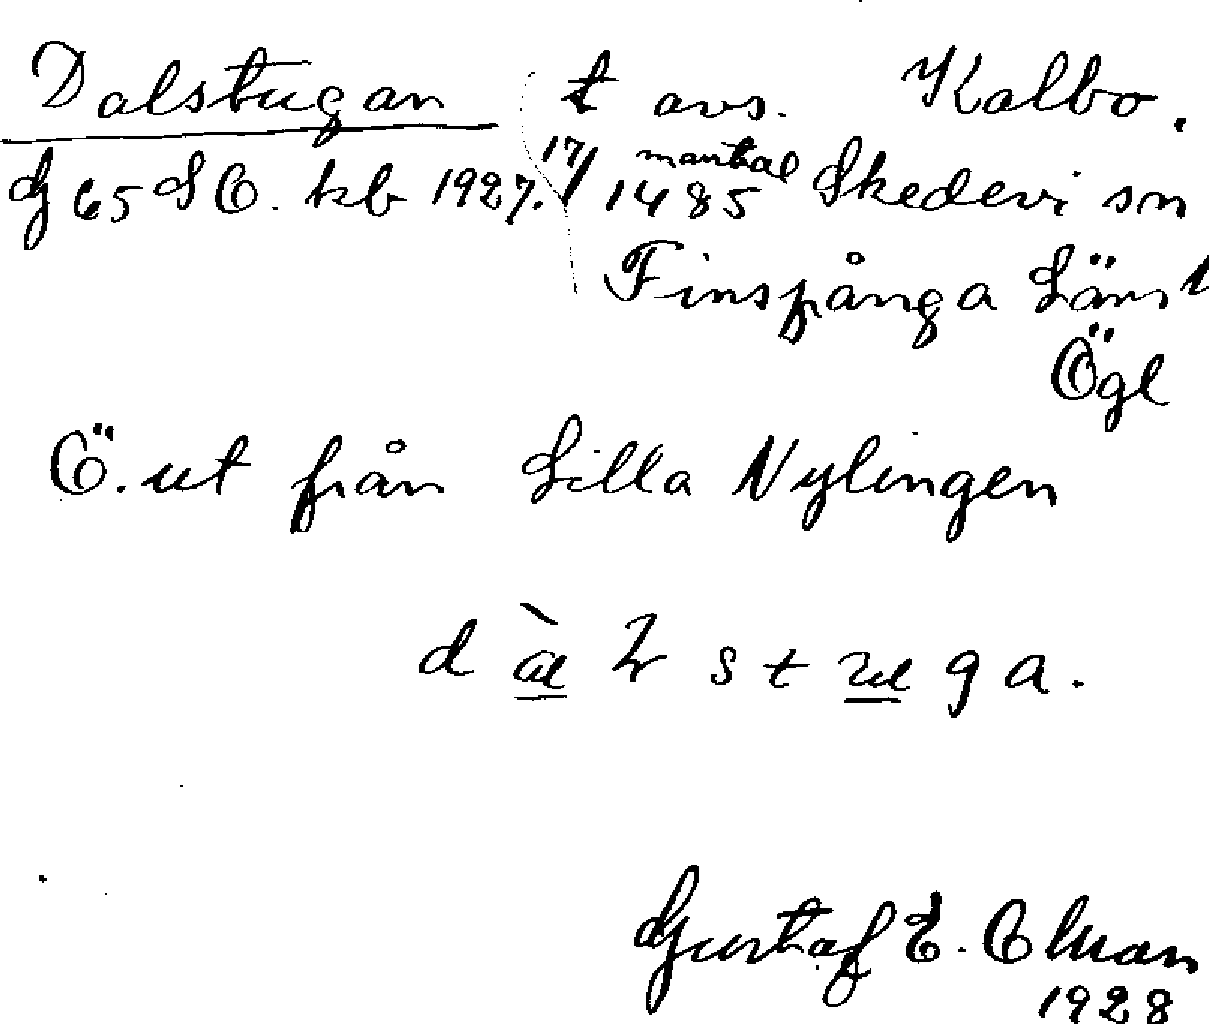 Dalstugan t avs. Kalbo.
G 65 SO. kb 1927. 17/1485 mantal Skedevi sn
Finspånga Läns
Ögl
Ö. ut från Lilla Nylingen
stuga.
Gustaf E. Olman
1928